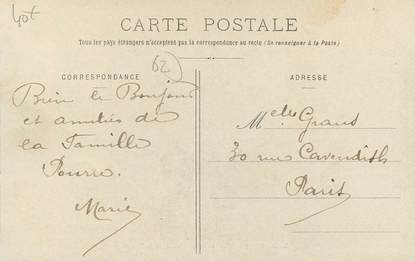 40t
CARTE POSTALE
Tous les pays étrangers n'acceptent pas la correspondance au recto (Se renseigner à la Poste)
CORRESPONDANCE
62
ADRESSE
Bien le Bonjour
et amitiés de
la Famille
Pourre.
Marie
Melle Graus
30 rue Cavendish
Paris